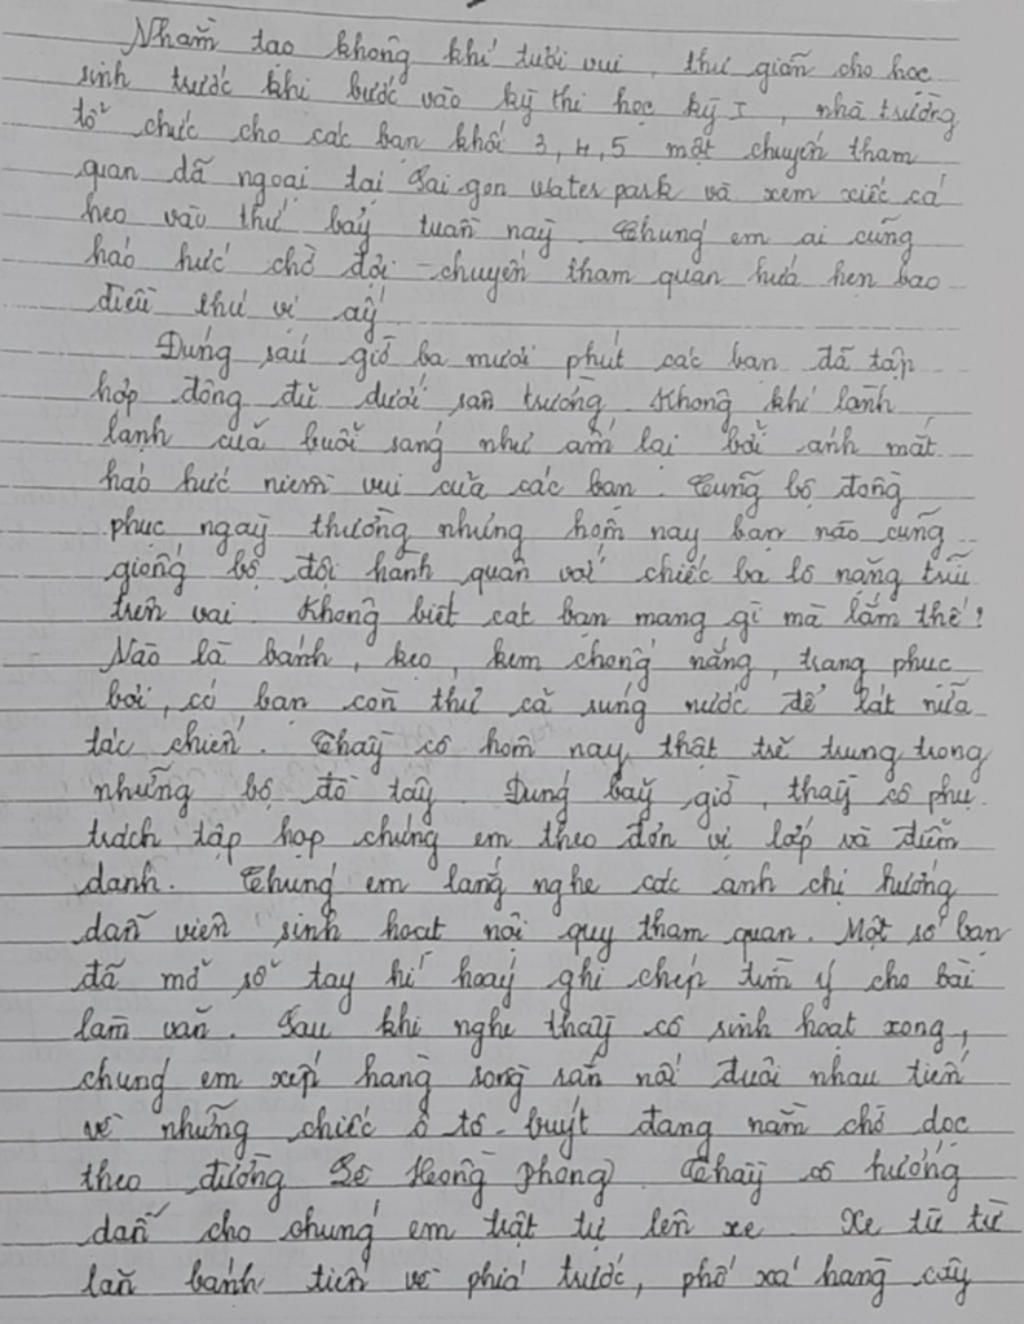 Nhằm tạo không khí tươi vui, thư giãn cho học
sinh trước khi bước vào kỳ thi học kỳ I, nhà trường
tổ chức cho các bạn khối 3, 4, 5 một chuyến tham
quan dã ngoại tại Sai gon Water park và xem xiếc cá
heo vào thứ bảy tuần này. Chúng em ai cũng
háo hức chờ đợi - chuyến tham quan hứa hẹn bao
điều thú vị ấy
Đúng sáu giờ ba mươi phút các bạn đã tập
hợp đông đủ dưới sân trường. Không khí lành
lạnh của buổi sáng như ấm lại bởi ánh mắt
háo hức niềm vui của các bạn. Cũng bộ đồng
phục ngày thường nhưng hôm nay bạn nào cũng
giống bộ đội hành quân với chiếc ba lô nặng trĩu
trên vai Không biết các bạn mang gì mà lắm thế!
Nào là bánh, kẹo, kem chống nắng, trang phục
bơi, có bạn còn thủ cả súng nước để lát nữa
tác chiến. Thầy cô hôm nay thật trẻ trung trong
những bộ đồ tây. Đúng bảy giờ, thầy cô phụ
trách tập hợp chúng em theo đơn vị lớp và điểm
danh. Chúng em lắng nghe các anh chị hướng
dẫn viên sinh hoạt nội quy tham quan. Một số bạn
đã mở sổ tay hí hoáy ghi chép tìm ý cho bài
làm văn. Sau khi nghe thầy cô sinh hoạt xong,
chúng em xếp hàng song sẵn nối đuôi nhau tiến
về những chiếc ô tô buýt đang nằm chờ dọc
theo đường Lê Hồng Phong. Thầy cô hướng
dẫn cho chúng em trật tự lên xe. Xe từ từ
lăn bánh tiến về phía trước, phố xá hàng cây